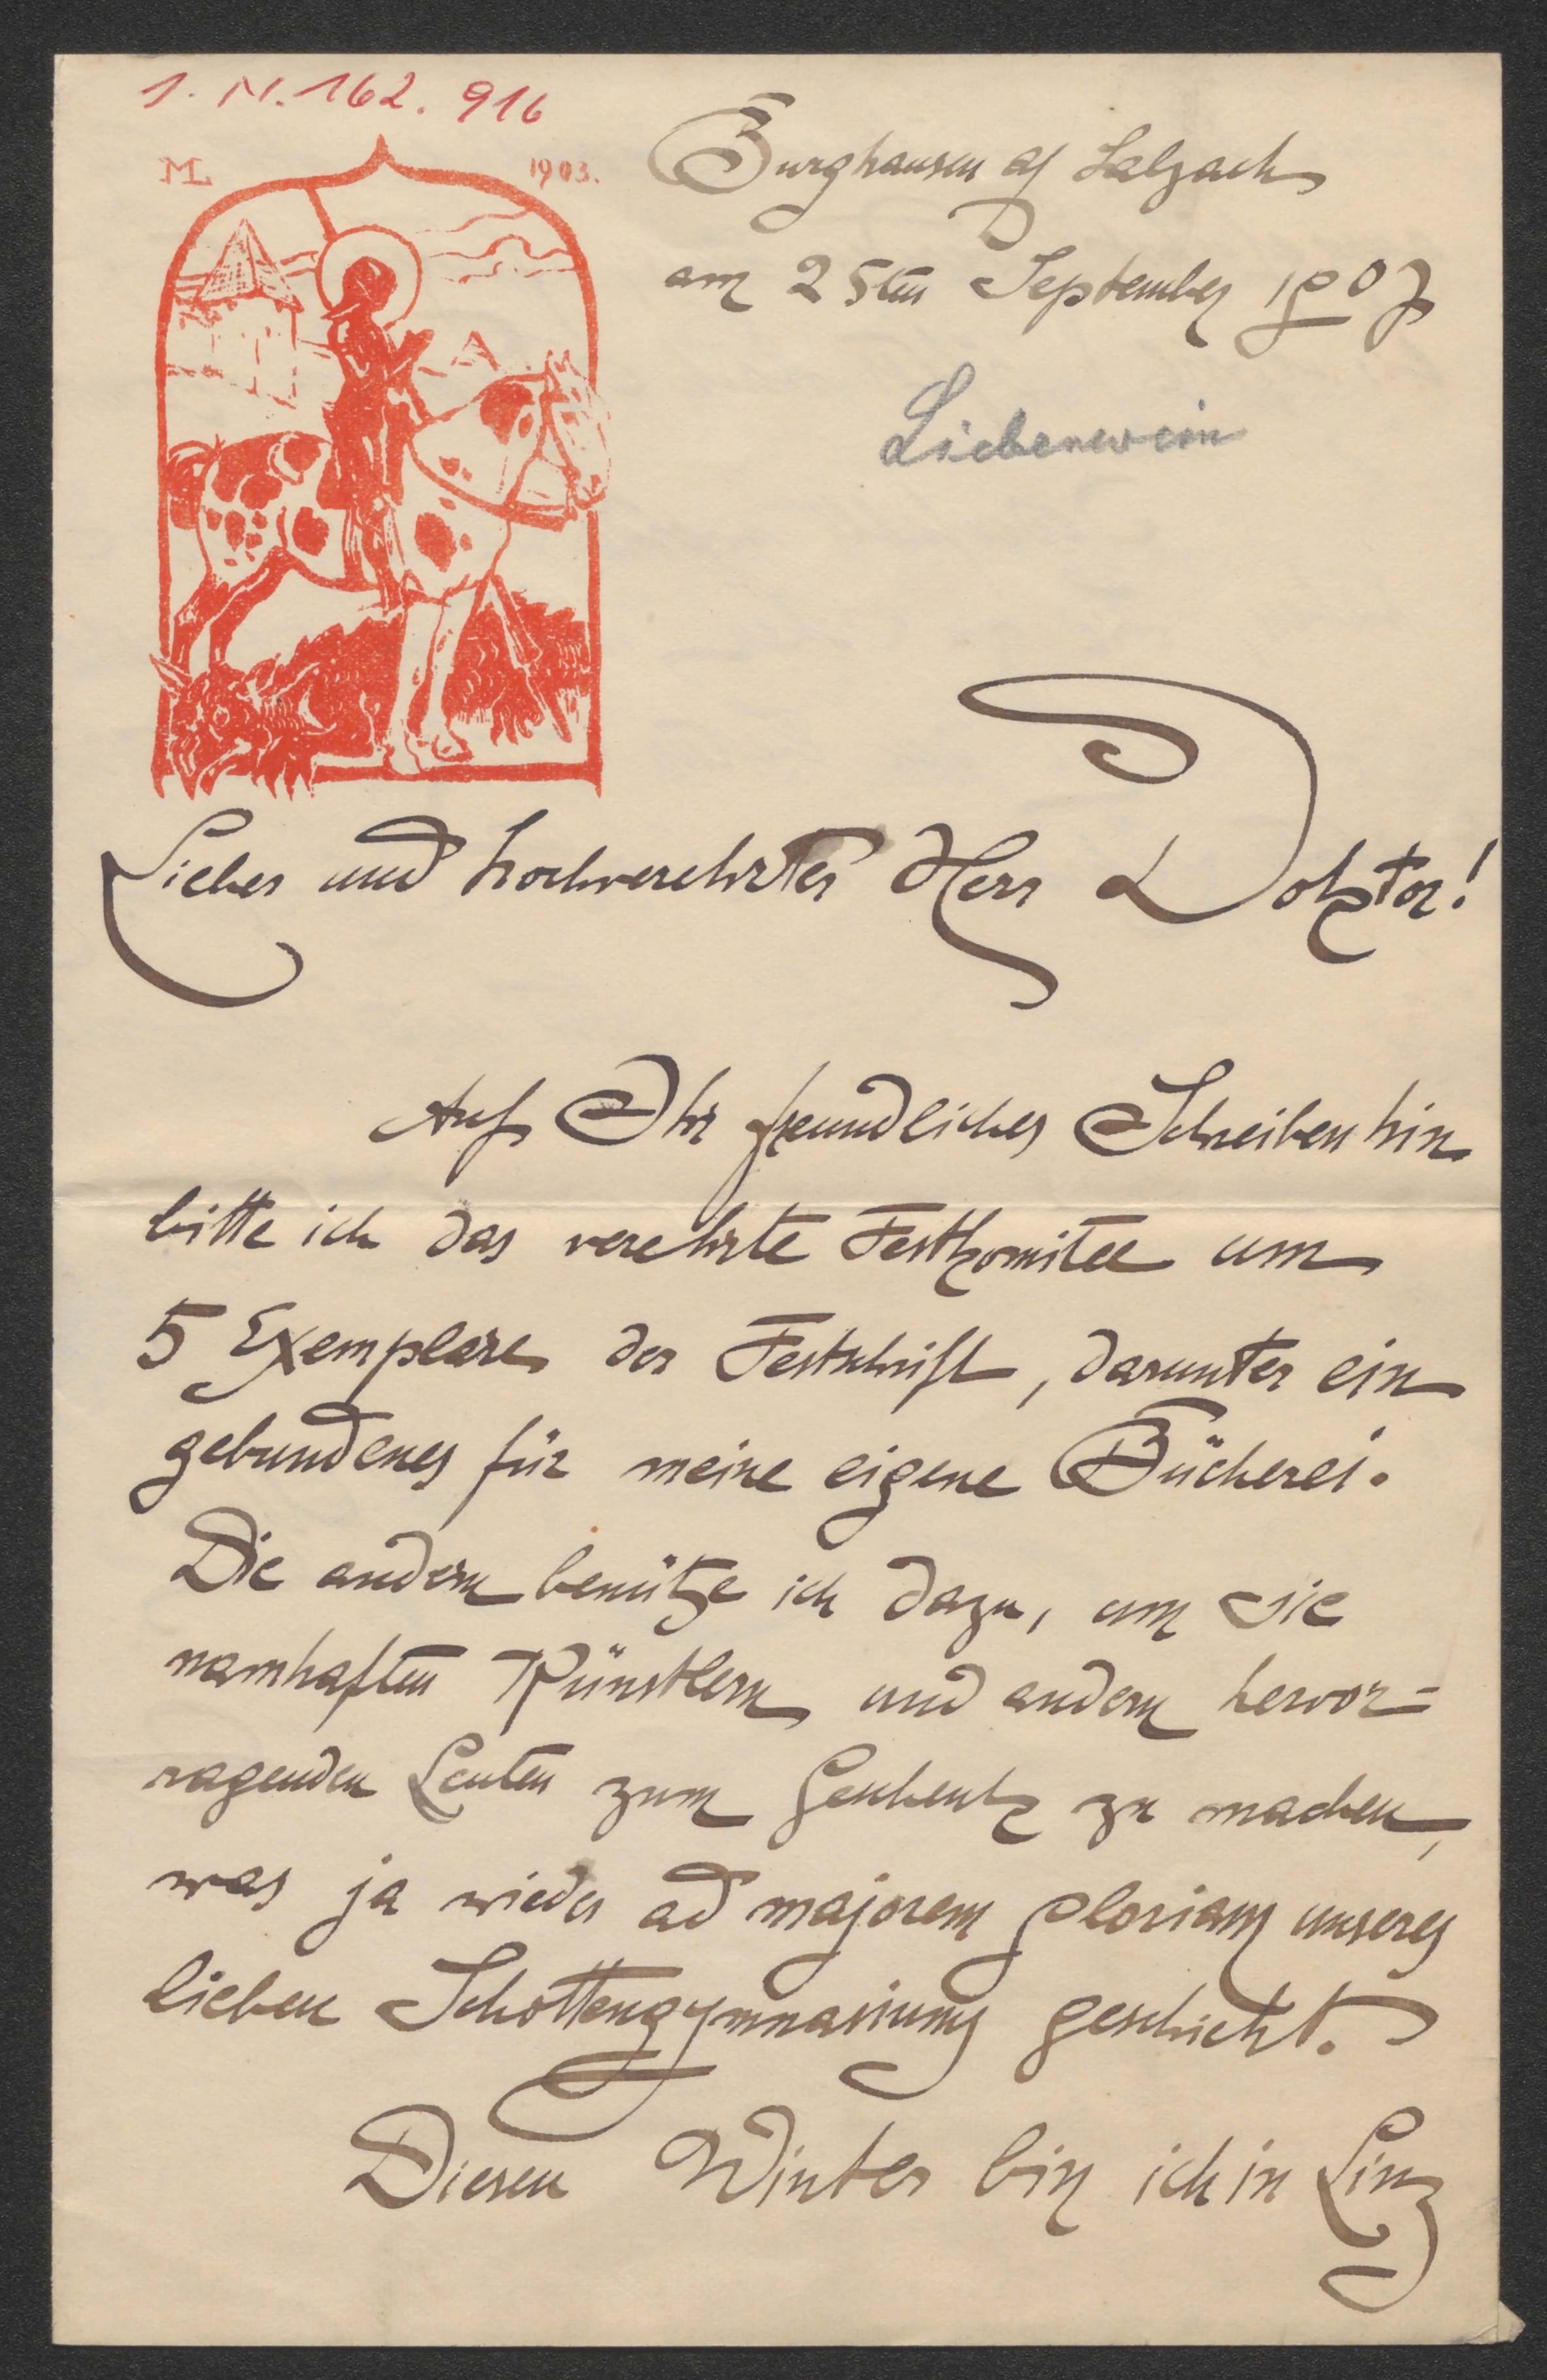 I. N. 162. 916
M. L. 1903.
Burghausen a/ Salzach
am 25ten September 1907
Liebenwein
Lieber und hochverehrter Herr Doktor!
Auf Ihr freundliches Schreiben hin
bitte ich das verehrte Festkomitee um
5 Exemplare der Festschrift, darunter ein
gebundenes für meine eigene Bücherei.
Die andern benütze ich dazu, um sie
namhaften Künstlern und andern hervor=
ragenden Leuten zum Geschenk zu machen,
was ja wieder ad majorem gloriam unseres
lieben Schottengymnasiums geschieht.
Diesen Winter bin ich in Linz